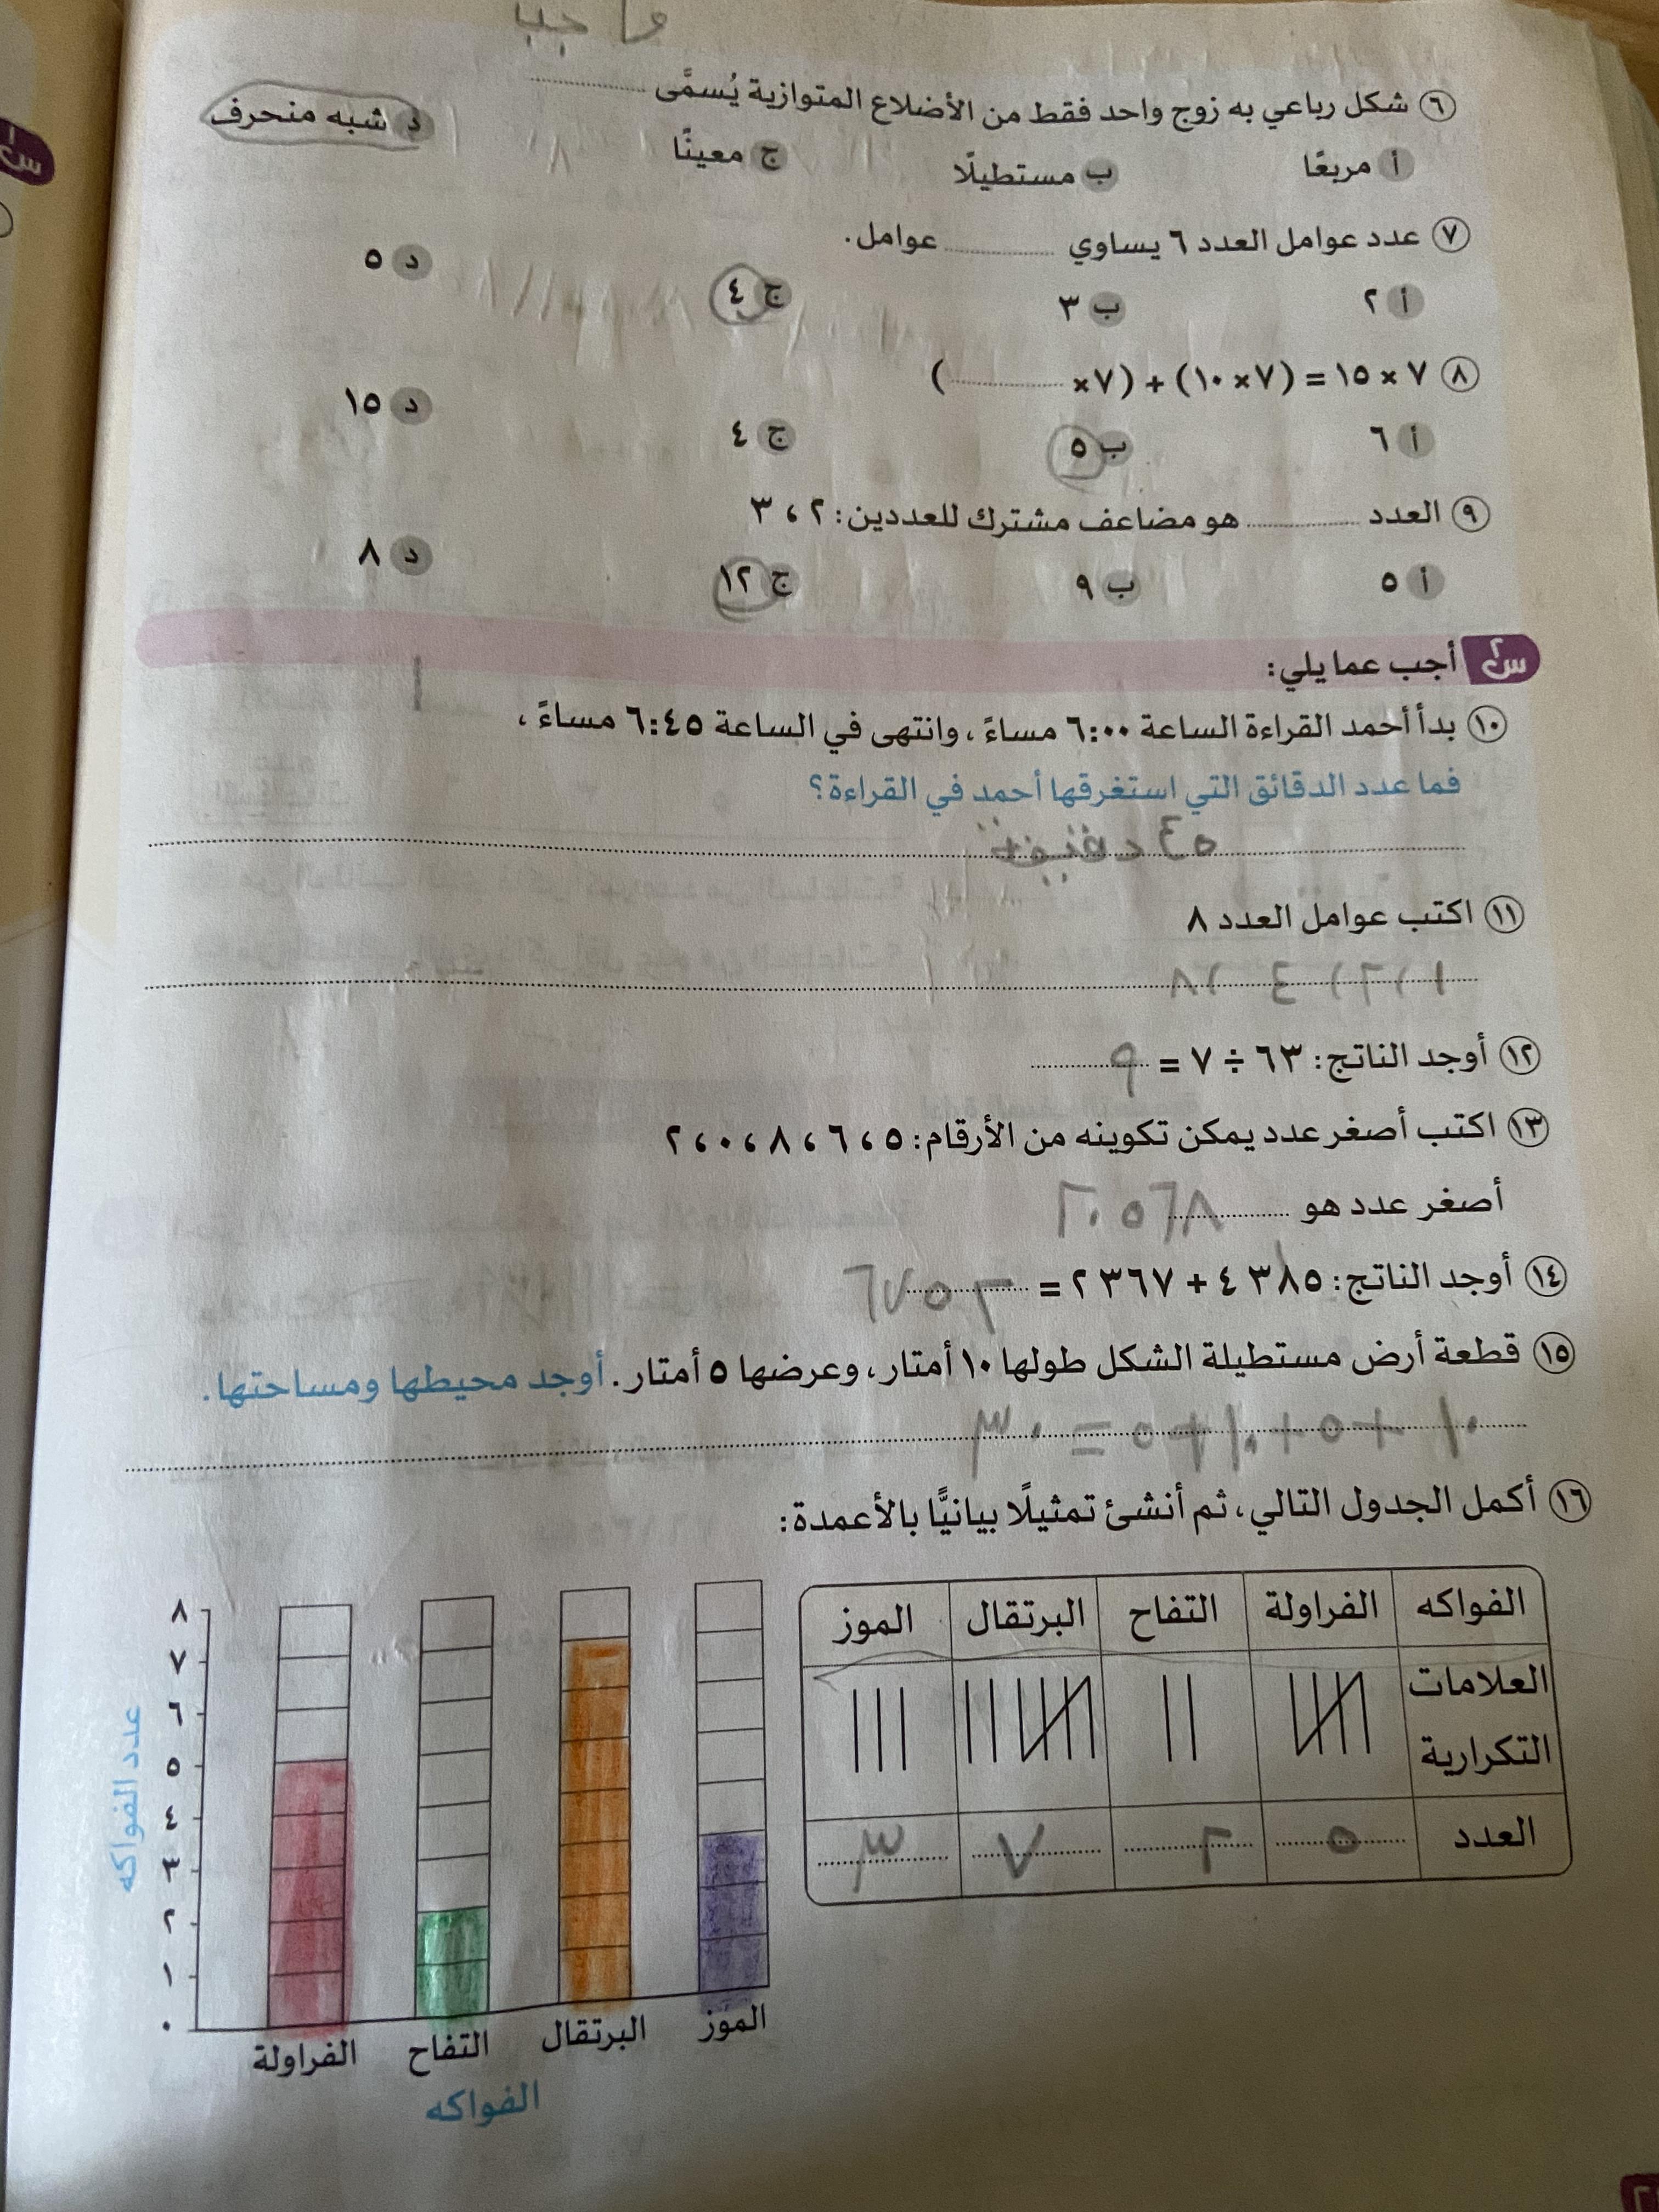 واجب
٦ شكل رباعي به زوج واحد فقط من الأضلاع المتوازية يُسمَّى ..........
أ مربعًا ب مستطيلًا ج معينًا د شبه منحرف
٧ عدد عوامل العدد ٦ يساوي .......... عوامل.
أ ٢ ب ٣ ج ٤ د ٥
٨ ٧ × ١٥ = (٧ × ١٠) + (٧ × ..........)
أ ٦ ب ٥ ج ٤ د ١٥
٩ العدد .......... هو مضاعف مشترك للعددين: ٢ ، ٣
أ ٥ ب ٩ ج ١٢ د ٨
س٢ أجب عما يلي:
١٠ بدأ أحمد القراءة الساعة ٦:٠٠ مساءً، وانتهى في الساعة ٦:٤٥ مساءً،
فما عدد الدقائق التي استغرقها أحمد في القراءة؟
٤٥ دقيقة
١١ اكتب عوامل العدد ٨
١ ، ٢ ، ٤ ، ٨
١٢ أوجد الناتج: ٦٣ ÷ ٧ = ٩
١٣ اكتب أصغر عدد يمكن تكوينه من الأرقام: ٥ ، ٦ ، ٨ ، ٠ ، ٢
أصغر عدد هو ٢٠٥٦٨
١٤ أوجد الناتج: ٤٣٨٥ + ٢٣٦٧ = ٦٧٥٢
١٥ قطعة أرض مستطيلة الشكل طولها ١٠ أمتار، وعرضها ٥ أمتار. أوجد محيطها ومساحتها.
١٠ + ٥ + ١٠ + ٥ = ٣٠
١٦ أكمل الجدول التالي، ثم أنشئ تمثيلًا بيانيًّا بالأعمدة:
الفواكه الفراولة التفاح البرتقال الموز
العلامات
التكرارية
العدد ٥ ٢ ٧ ٣
عدد الفواكه
٨
٧
٦
٥
٤
٣
٢
١
٠
الفراولة التفاح البرتقال الموز
الفواكه